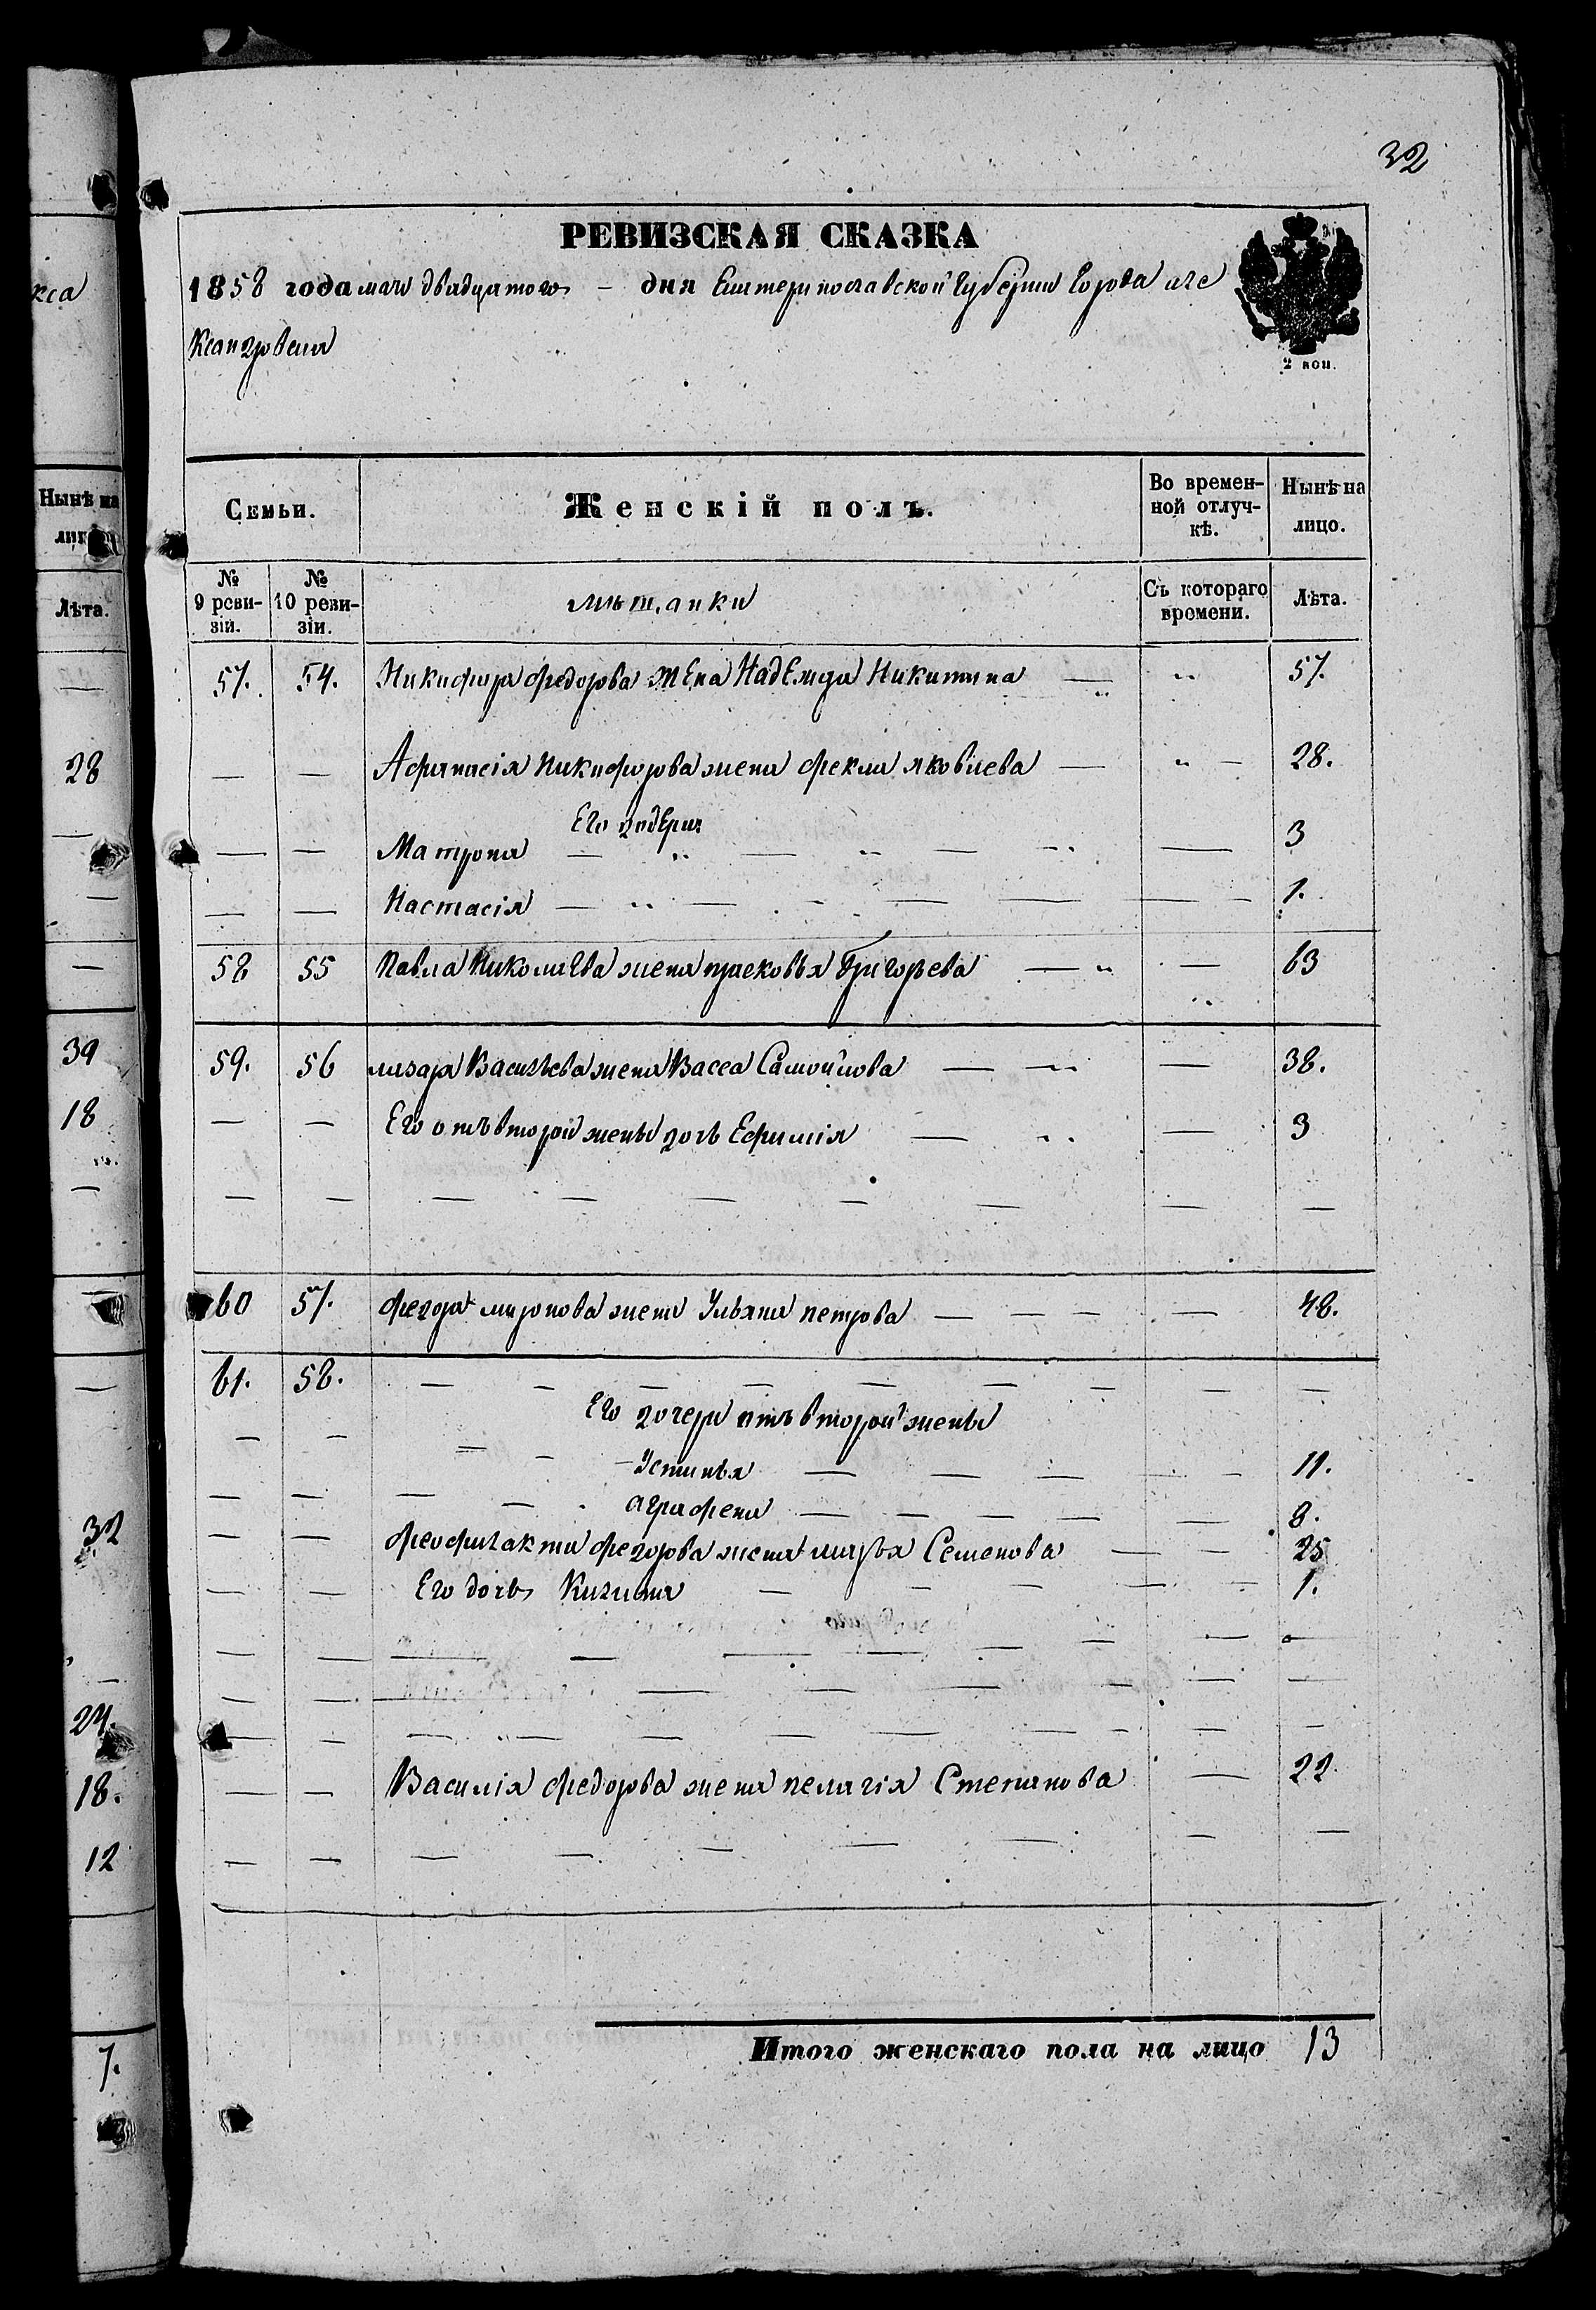 32
РЕВИЗСКАЯ СКАЗКА
1858 года мая двадцятого — дня Екатеринославской Губерніи Города але
ксандровска
2 коп.
Семьи.
Женскій полъ.
Во времен-
ной отлуч-
кѣ.
Нынѣ на
лицо.
№
9 реви-
зіи.
№
10 реви-
зіи.
мѣщанки
Съ котораго
времени.
Лѣта.
57. 54. Никифора федорова жена Надежда Никитина — „ 57.
— — Афанасія никифорова жена фекла яковлева — „ — 28.
Его дочери
— — Матрона — „ — „ — — 3
— — Настасія — „ — — — 1.
58 55 Павла Николаева жена прасковья Григорьева — „ — 63
59. 56 лазаря Васильева жена Васса Самойлова — „ — 38.
— — Его отъ второй жены дочь Ефимія — „ — 3
60 57. федора миронова жена Ульяна петрова — — — — 48.
61. 58. — — — — — — — — —
Его дочери отъ второй жены
— Устинья — — — — 11.
— — — — аграфена — — — — 8.
— — феофилакта федорова жена марья Семенова — — 25
— — Его дочь — — — — 1.
— — Василія федорова жена пелагія Степанова — 22.
Итого женскаго пола на лицо 13
кса
Нынѣ на
лицо
Лѣта.
28
39
18
32
24.
18.
12
7.